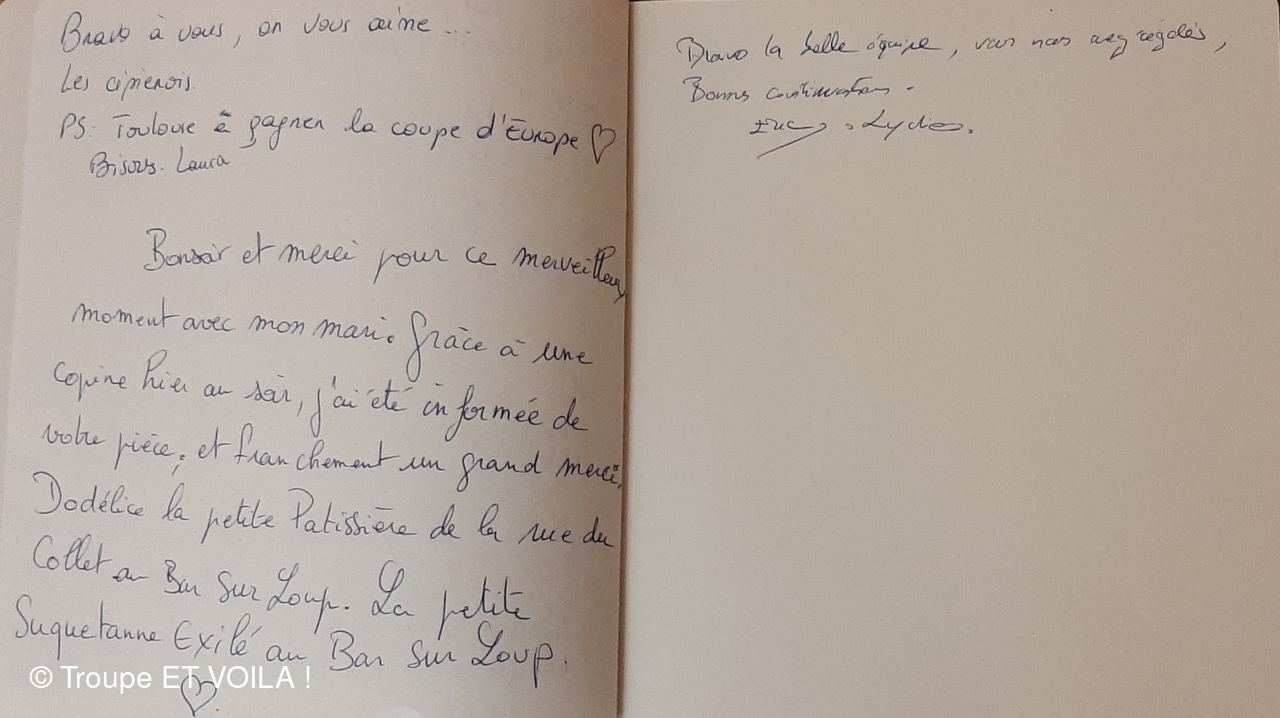 Bravo à vous, on vous aime ...
Les cipierois.
PS: Toulouse à gagner la coupe d'Europe ♡
Bisous. Laura
Bonsoir et merci pour ce merveilleux
moment avec mon mari. Grâce à une
copine hier au soir, j'ai été informée de
votre pièce, et franchement un grand merci.
Dodélice la petite Patissière de la rue du
Collet au Bar sur Loup. La petite
Suquetanne Exilé au Bar sur Loup.
♡
Bravo la belle équipe, vous nous avez régalés,
Bonne continuation.
Lydie.
© Troupe ET VOILA !